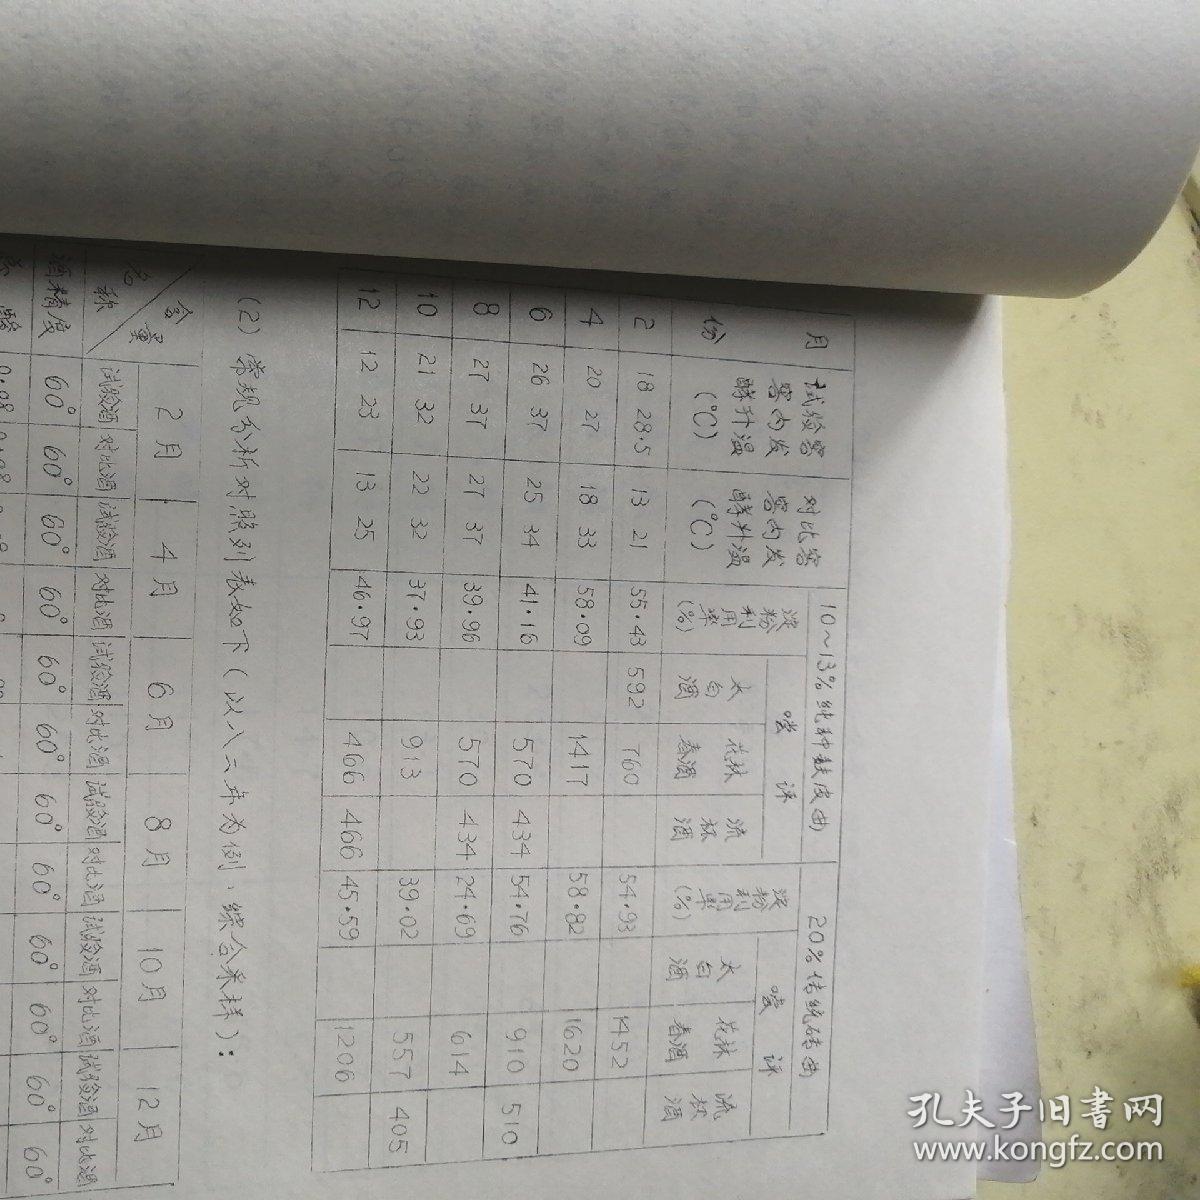 月份 试验窖窖内发酵升温(℃) 对比窖窖内发酵升温(℃) 10~13%纯种麸皮曲 20%传统砖曲
淀粉利用率(%) 尝评 淀粉利用率(%) 尝评
太白酒 花林春酒 流杯酒 太白酒 花林春酒 流杯酒
2 18 28.5 13 21 55.43 592 760 54.93 1452
4 20 27 18 33 58.09 1417 58.82 1620
6 26 37 25 34 41.16 570 434 54.76 910 510
8 27 37 27 37 39.96 570 434 24.69 614
10 21 32 22 32 37.93 913 39.02 557 405
12 12 23 13 25 46.97 466 466 45.59 1206
(2) 常规分析对照列表如下(以八二年为例，综合采样):
含量 2月 4月 6月 8月 10月 12月
名称 试验酒 对比酒 试验酒 对比酒 试验酒 对比酒 试验酒 对比酒 试验酒 对比酒 试验酒 对比酒
酒精度 60° 60° 60° 60° 60° 60° 60° 60° 60° 60° 60° 60°
孔夫子旧书网
www.kongfz.com